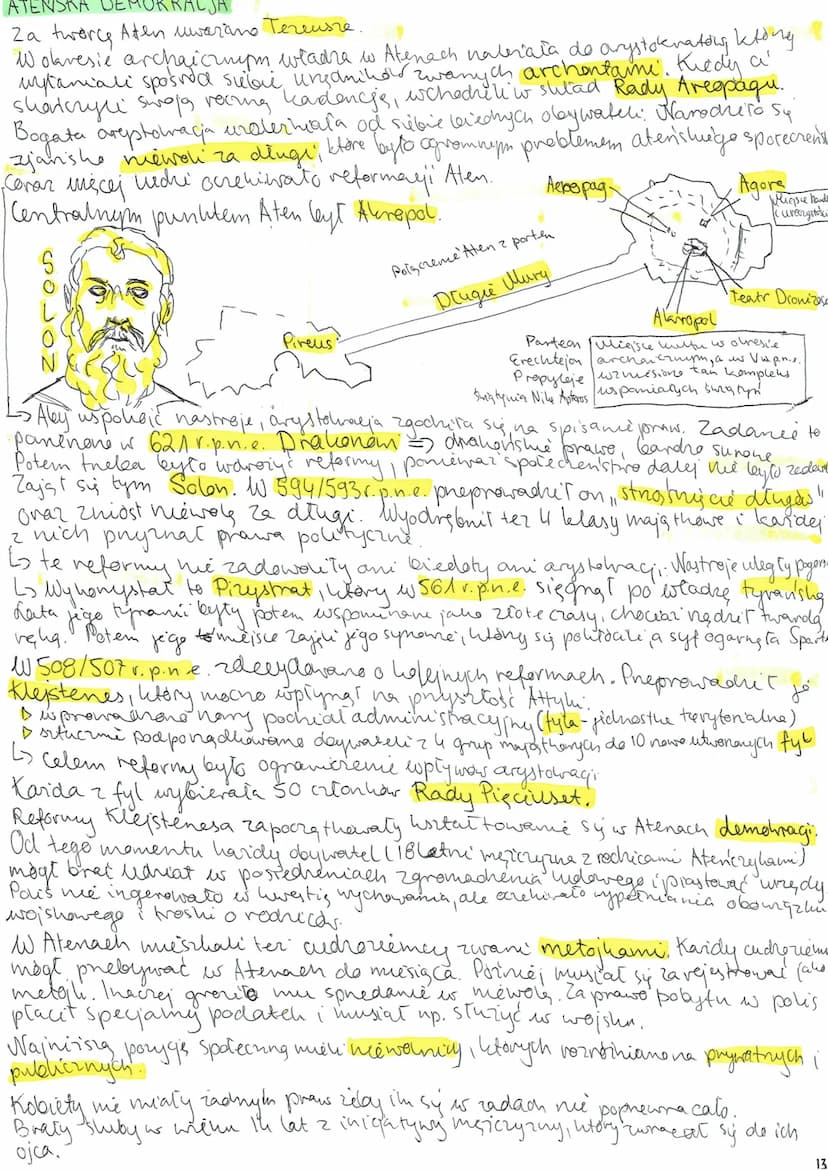 ATEŃSKA DEMOKRACJA
Za twórcę Aten uważano Tezeusza.
W okresie archaicznym władza w Atenach należała do arystokratów, którzy
wyłaniali spośród siebie urzędników zwanych archontami. Kiedy ci
skończyli swoją roczną kadencję, wchodzili w skład Rady Areopagu.
Bogata arystokracja uzależniała od siebie biednych obywateli. Narodziło się
zjawisko niewoli za długi, które było ogromnym problemem ateńskiego społeczeńs
Coraz więcej ludzi oczekiwało reformacji Aten.
Centralnym punktem Aten był Akropol.
SOLON
Areopag
Agora
Miejsce
i uroczysto
Połączenie Aten z portem
Długie Mury
Pireus
Teatr Dionizosa
Akropol
Partenon
Erechtejon
Propyleje
Świątynia Nike Apteros
Miejsce kultu w okresie
archaicznym, a w V w.p.n.e.
wzniesiono tam kompleks
wspaniałych świątyń
→ Aby uspokoić nastroje, arystokracja zgodziła się na spisanie praw. Zadanie to
powierzono w 621 r.p.n.e. Drakonowi ⇒ drakońskie prawo, bardzo surowe
Potem trzeba było wdrożyć reformy, ponieważ społeczeństwo dalej nie było zadow
Zajął się tym Solon. W 594/593 r.p.n.e. przeprowadził on „strząśnięcie długów"
oraz zniósł niewolę za długi. Wyodrębnił też 4 klasy majątkowe i każdej
z nich przyznał prawa polityczne.
↳ te reformy nie zadowoliły ani biedoty ani arystokracji. Nastroje uległy pogors
↳ Wykorzystał to Pizystrat, który w 561 r.p.n.e. sięgnął po władzę tyrańską
Lata jego tyranii były potem wspominane jako złote czasy, chociaż rządził twardą
ręką. Potem jego miejsce zajęli jego synowie, którzy się pokłócali, a syf ogarnęła Sparta
W 508/507 r.p.n.e. zdecydowano o kolejnych reformach. Przeprowadził je
Klejstenes, który mocno wpłynął na przyszłość Attyki:
▷ wprowadzono nowy podział administracyjny (fyla - jednostka terytorialna)
▷ sztucznie podporządkowano obywateli z 4 grup majątkowych do 10 nowo utworzonych fyl
↳ celem reformy było ograniczenie wpływów arystokracji
Każda z fyl wybierała 50 członków Rady Pięciuset.
Reformy Klejstenesa zapoczątkowały kształtowanie się w Atenach demokracji.
Od tego momentu każdy obywatel (18 letni mężczyzna z rodzicami Ateńczykami)
mógł brać udział w posiedzeniach zgromadzenia ludowego i piastować urzędy.
Polis nie ingerowało w kwestię wychowania, ale oczekiwało wypełniania obowiązku
wojskowego i troski o rodziców.
W Atenach mieszkali też cudzoziemcy zwani metojkami. Każdy cudzoziemi
mógł przebywać w Atenach do miesiąca. Później musiał się zarejestrować jako
metojk. Inaczej groziło mu sprzedanie w niewolę. Za prawo pobytu w polis
płacił specjalny podatek i musiał np. służyć w wojsku.
Najniższą pozycję społeczną mieli niewolnicy, których rozróżniano na prywatnych i
publicznych.
Kobiety nie miały żadnych praw żeby im się w zadach nie poprzewracało.
Brały śluby w wieku 14 lat z inicjatywy mężczyzny, który zwracał się do ich
ojca.
13